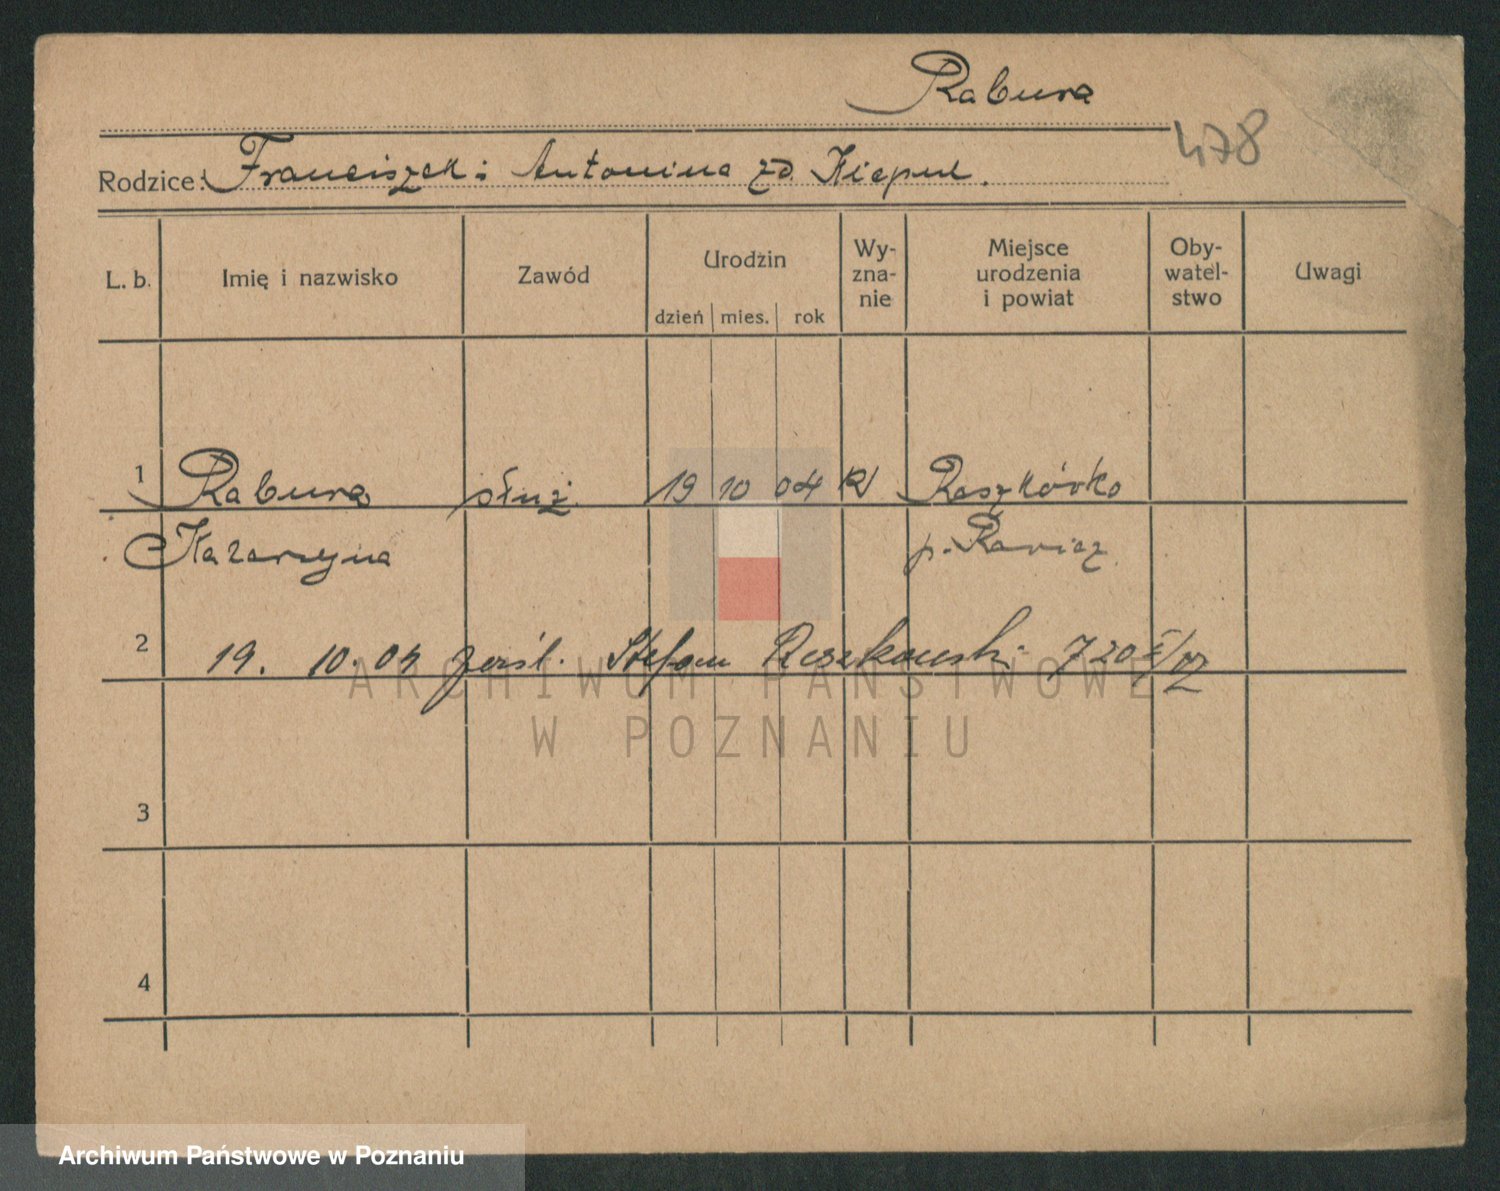 Rabura
478
Rodzice: Franciszek i Antonina zd. Kiepul.
L. b. Imię i nazwisko Zawód Urodzin dzień mies. rok Wy- zna- nie Miejsce urodzenia i powiat Oby- watel- stwo Uwagi
1 Rabura służ. 19 10 04 Raszkówko
Katarzyna p. Rawicz
2 19. 10. 04 zaśl. Stefan Reszkowski 720
3
4
ARCHIWUM PAŃSTWOWE
W POZNANIU
Archiwum Państwowe w Poznaniu